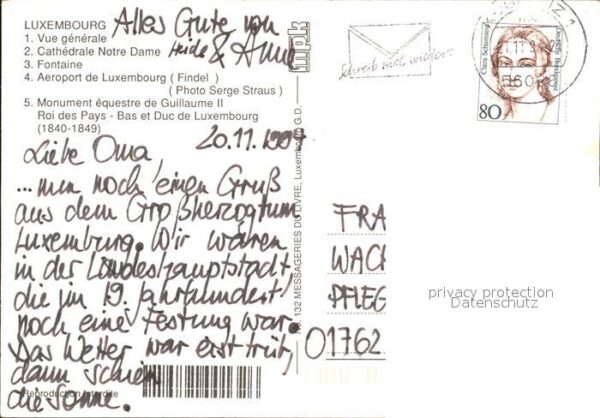 LUXEMBOURG
1. Vue générale
2. Cathédrale Notre Dame
3. Fontaine
4. Aeroport de Luxembourg ( Findel )
( Photo Serge Straus )
5. Monument équestre de Guillaume II
Roi des Pays - Bas et Duc de Luxembourg
(1840-1849)
Alles Gute von
Heide & Anne
20.11.1994
Liebe Oma,
...nun noch einen Gruß
aus dem Großherzogtum
Luxemburg. Wir waren
in der Landeshauptstadt,
die im 19. Jahrhundert
noch eine Festung war.
Das Wetter war erst trüb,
dann schien
die Sonne.
Reproduction interdite
mpk
No. 132 MESSAGERIES DU LIVRE, Luxembourg G.D.
Schreib mal wieder
Clara Schumann
Deutsche Bundespost
80
FRA
WACH
PFLEG
01762
privacy protection
Datenschutz